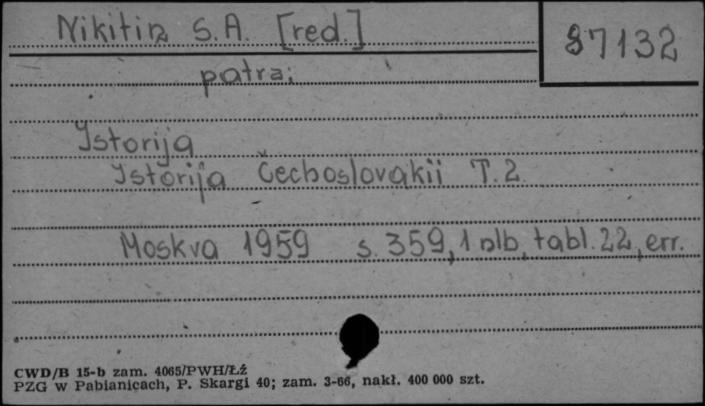 Nikitin S.A. [red.]
87132
patrz:
Istorija
Istorija Čechoslovakii T.2.
Moskva 1959 s. 359, 1 nlb, tabl. 22, err.
CWD/B 15-b zam. 4065/PWH/Łź
PZG w Pabianicach, P. Skargi 40; zam. 3-66, nakł. 400 000 szt.